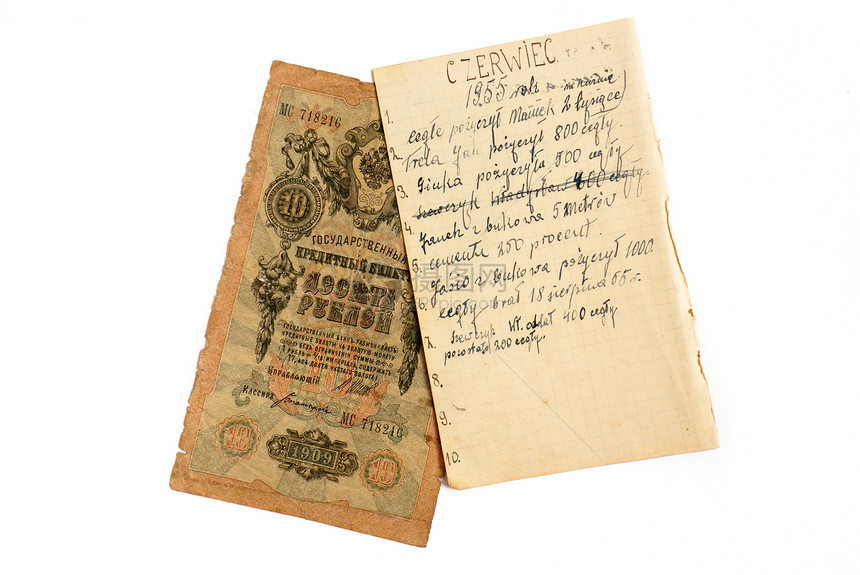 МС 718216
10
ГОСУДАРСТВЕННЫЙ
КРЕДИТНЫЙ БИЛЕТ
ДЕСЯТЬ
РУБЛЕЙ
ГОСУДАРСТВЕННЫЙ БАНК РАЗМѢНИВАЕТЪ
КРЕДИТНЫЕ БИЛЕТЫ НА ЗОЛОТУЮ МОНЕТУ
БЕЗЪ ОГРАНИЧЕНІЯ СУММЫ
УПРАВЛЯЮЩІЙ
Кассиръ
МС 718216
10
1909
10
CZERWIEC
1955 rok
1. cegłe pożyczył Maniek 2 tysiące
2. Trela Jan pożyczył 800 cegły.
3. Ginka pożyczyła 500 cegły
szewczyk Władysław 400 cegły.
4. Janek z bukowa 5 Metrów
5. cementu 250 procent.
Jasio z bukowa pożyczył 1000.
6. cegły brał 18 sierpnia 55 r.
7. szewczyk Wł. oddał 400 cegły
pozostało 200 cegły.
8.
9.
10.